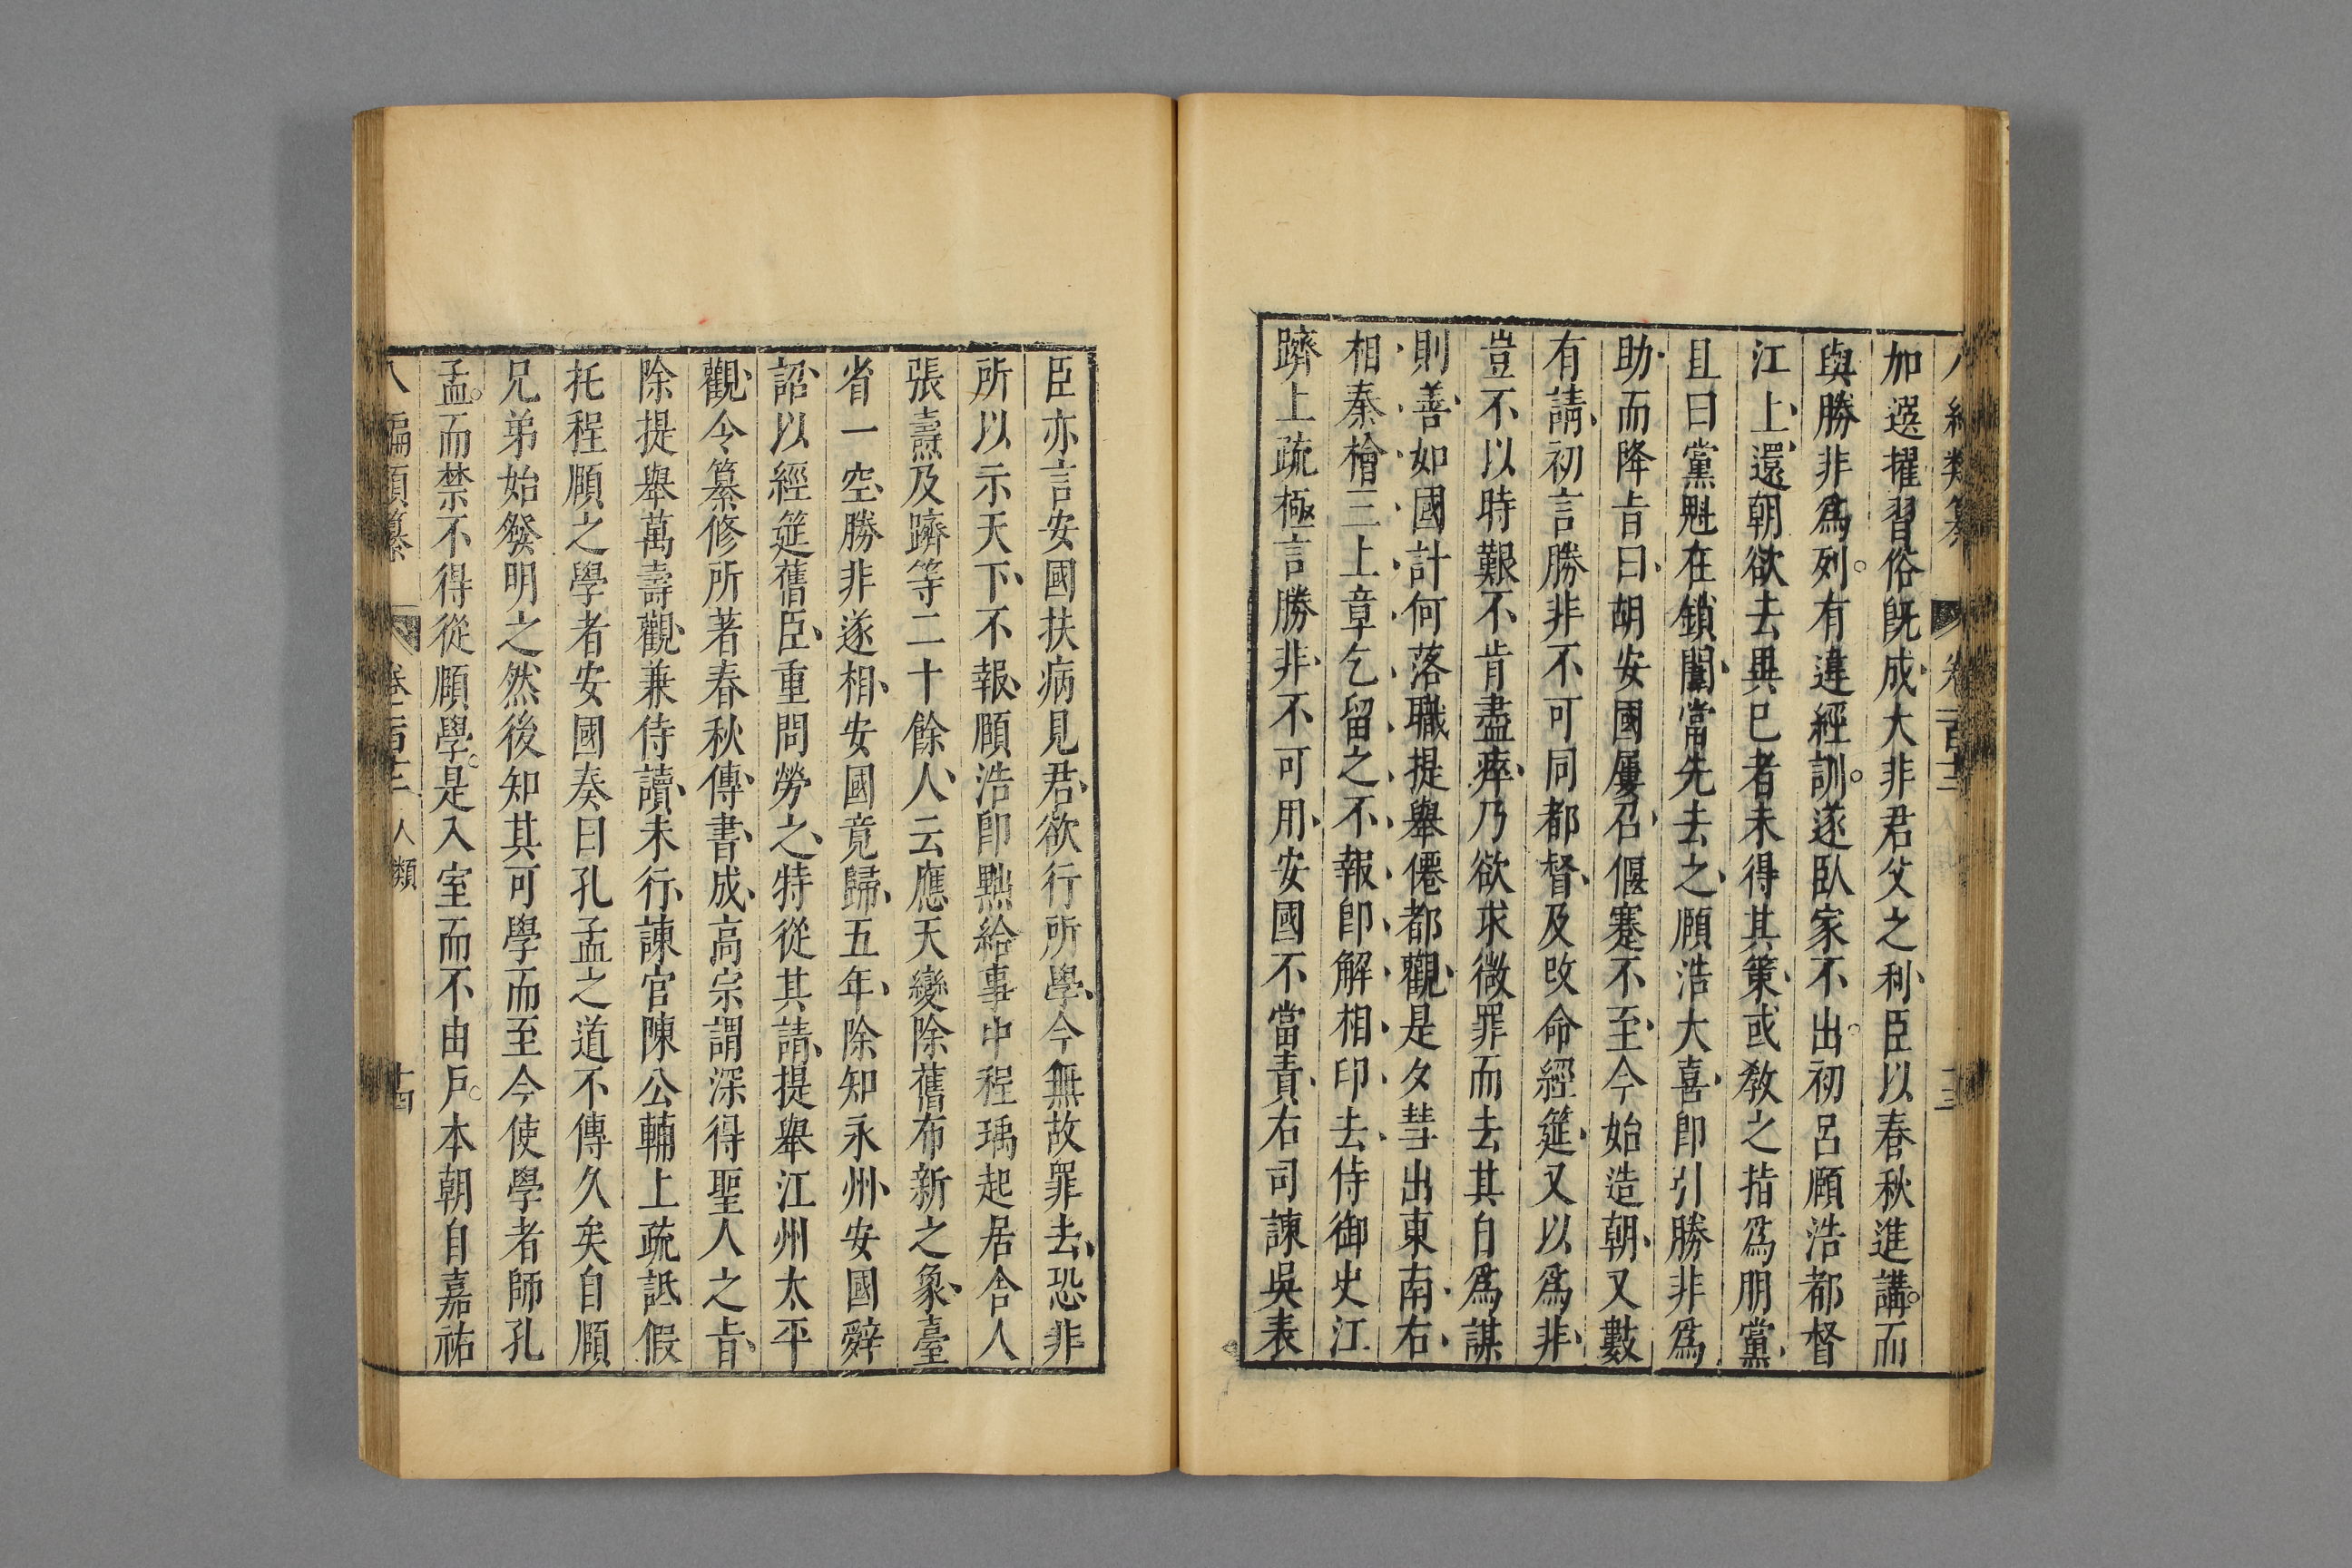 加選擢習俗旣成大非君父之利臣以春秋進講而
與勝非爲列有違經訓遂臥家不出初呂頥浩都督
江上還朝欲去異巳者未得其策或敎之指爲朋黨
且曰黨魁在鎖闥當先去之頥浩大喜卽引勝非爲
助而降旨曰胡安國屢召偃蹇不至今始造朝又數
有請初言勝非不可同都督及改命經筵又以爲非
豈不以時艱不肯盡瘁乃欲求微罪而去其自爲謀
則善如國計何落職提舉僊都觀是夕彗出東南右
相秦檜三上章乞留之不報卽解相印去侍御史江
躋上疏極言勝非不可用安國不當責右司諫吳表
臣亦言安國扶病見君欲行所學今無故罪去恐非
所以示天下不報頥浩卽黜給事中程瑀起居舍人
張燾及躋等二十餘人云應天變除舊布新之象臺
省一空勝非遂相安國竟歸五年除知永州安國辭
詔以經筵舊臣重問勞之特從其請提舉江州太平
觀令纂修所著春秋傳書成高宗謂深得聖人之旨
除提舉萬壽觀兼侍讀未行諫官陳公輔上疏詆假
托程頥之學者安國奏曰孔孟之道不傳久矣自頥
兄弟始發明之然後知其可學而至今使學者師孔
孟而禁不得從頥學是入室而不由戶本朝自嘉祐
八編類纂 卷二百十三 人類 十四